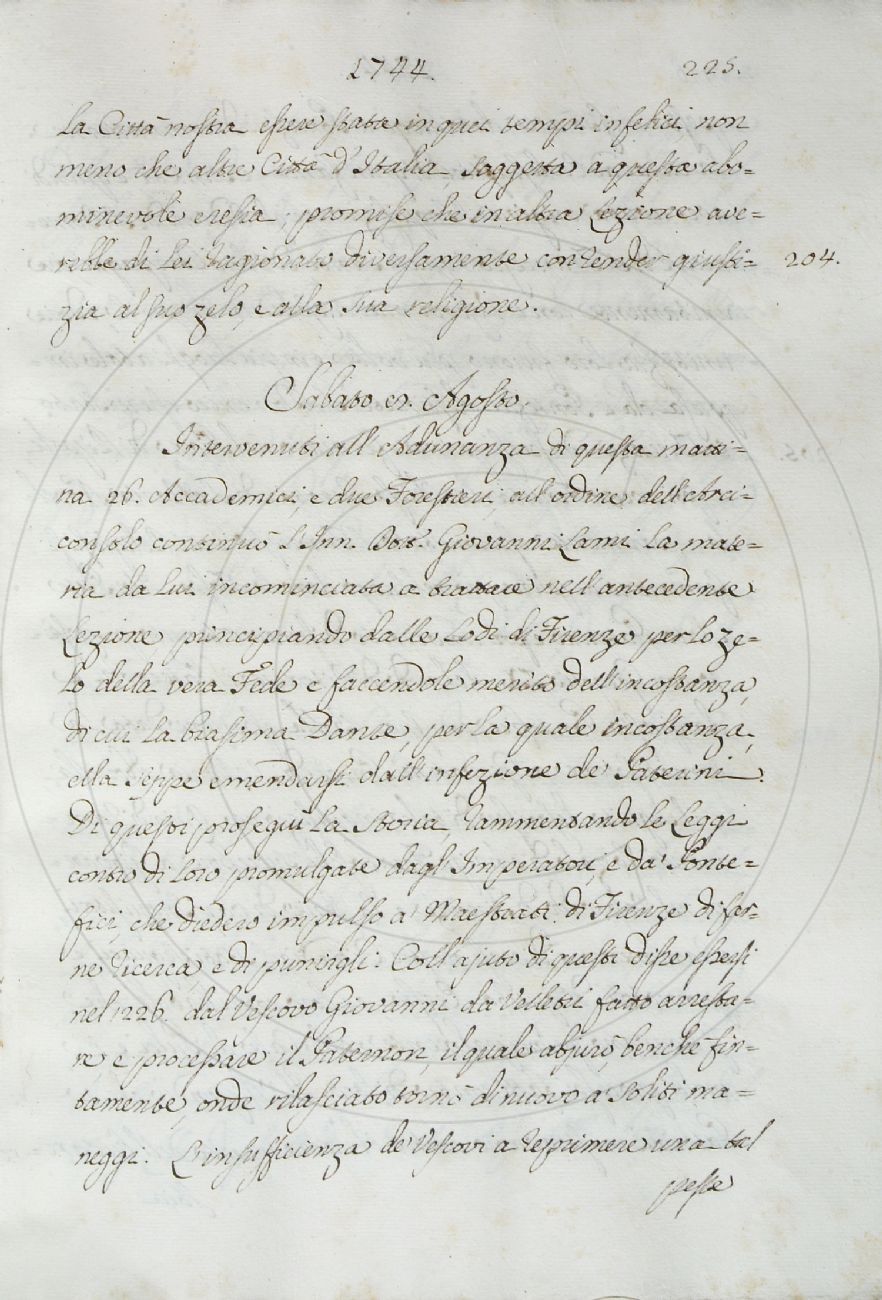 1744.
225.
la Città nostra essere stata in quei tempi infelici non
meno che altre Città d'Italia soggetta a questa abo=
minevole eresia; promise che in altra Lezione ave=
rebbe di Lei ragionato diversamente con render giusti=
204.
zia al suo zelo, e alla sua religione.
Sabato Agosto.
Intervenuti all'Adunanza di questa matti=
na 26. Accademici, e due Forestieri, all'ordine dell'Arci=
consolo continuò L'Inn. Dott. Giovanni Lami la mate=
ria da Lui incominciata a trattare nell'antecedente
Lezione, principiando dalle Lodi di Firenze per lo ze=
lo della vera Fede e faccendole merito dell'incostanza,
di cui la biasima Dante, per la quale incostanza,
ella seppe emendarsi dall'infezione de' Paterini.
Di questi proseguì la Storia, rammentando le Leggi
contro di Loro promulgate dagl'Imperatori, e da' Ponte=
fici, che diedero impulso a' Maestrati di Firenze di far=
ne ricerca, e di punirgli. Coll'ajuto di questi disse essersi
nel 1226. dal Vescovo Giovanni da Velletri fatto arresta=
re e processare il Paternon, il quale abjurò, benchè fin=
tamente, onde rilasciato tornò di nuovo a' soliti ma=
neggi. L'insufficienza de' Vescovi a reprimere una tal
peste